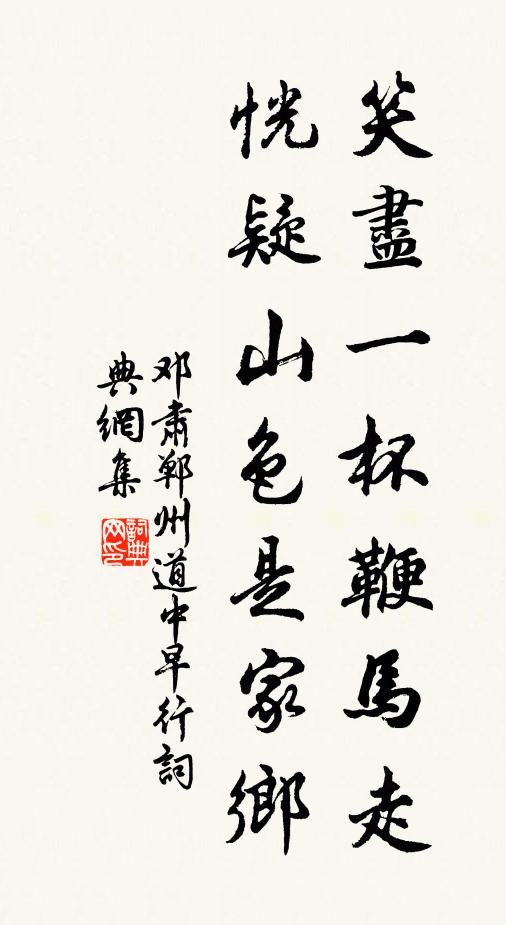 笑盡一杯鞭馬走
恍疑山色是家鄉
邓肅鄲州道中早行詞
典網集
詞典网印